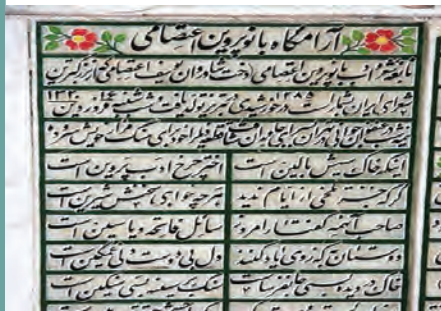 آرامگاه بانو پروین اعتصامی
نابغه شعر و ادب بانو پروین اعتصامی دخت شادروان یوسف اعتصامی که از بزرگترین
شعرای ایران بشمار است در ۱۲۸۵ خورشیدی در تبریز تولد یافت شنبه ۱۶ فروردین ۱۳۲۰
قطعه را خود برای سنگ مزار خویش سروده
اینکه خاک سیهش بالین است اختر چرخ ادب پروین است
گرچه جز تلخی از ایام ندید هر چه خواهی سخنش شیرین است
صاحب آنهمه گفتار امروز سائل فاتحه و یاسین است
دوستان به که ز وی یاد کنند دل بی دوست دلی غمگین است
خاک در دیده بسی جان فرساست سنگ بر سینه بسی سنگین است